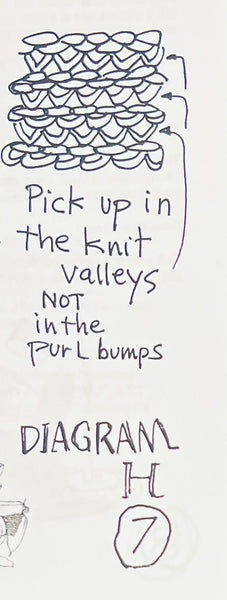 Pick up in
the knit
valleys
NOT
in the
purl bumps
DIAGRAM
H
7